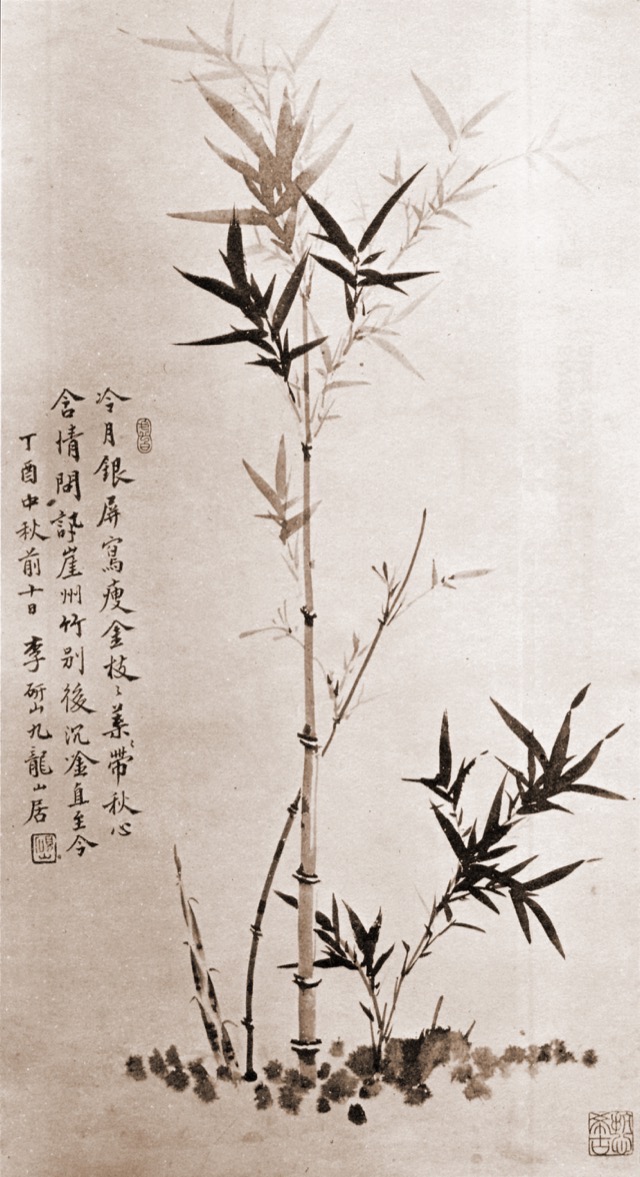 冷月銀屏寫瘦金枝〻葉〻帶秋心
含情問訊崖州竹別後沉唫直至今
丁酉中秋前十日 李研山九龍山居